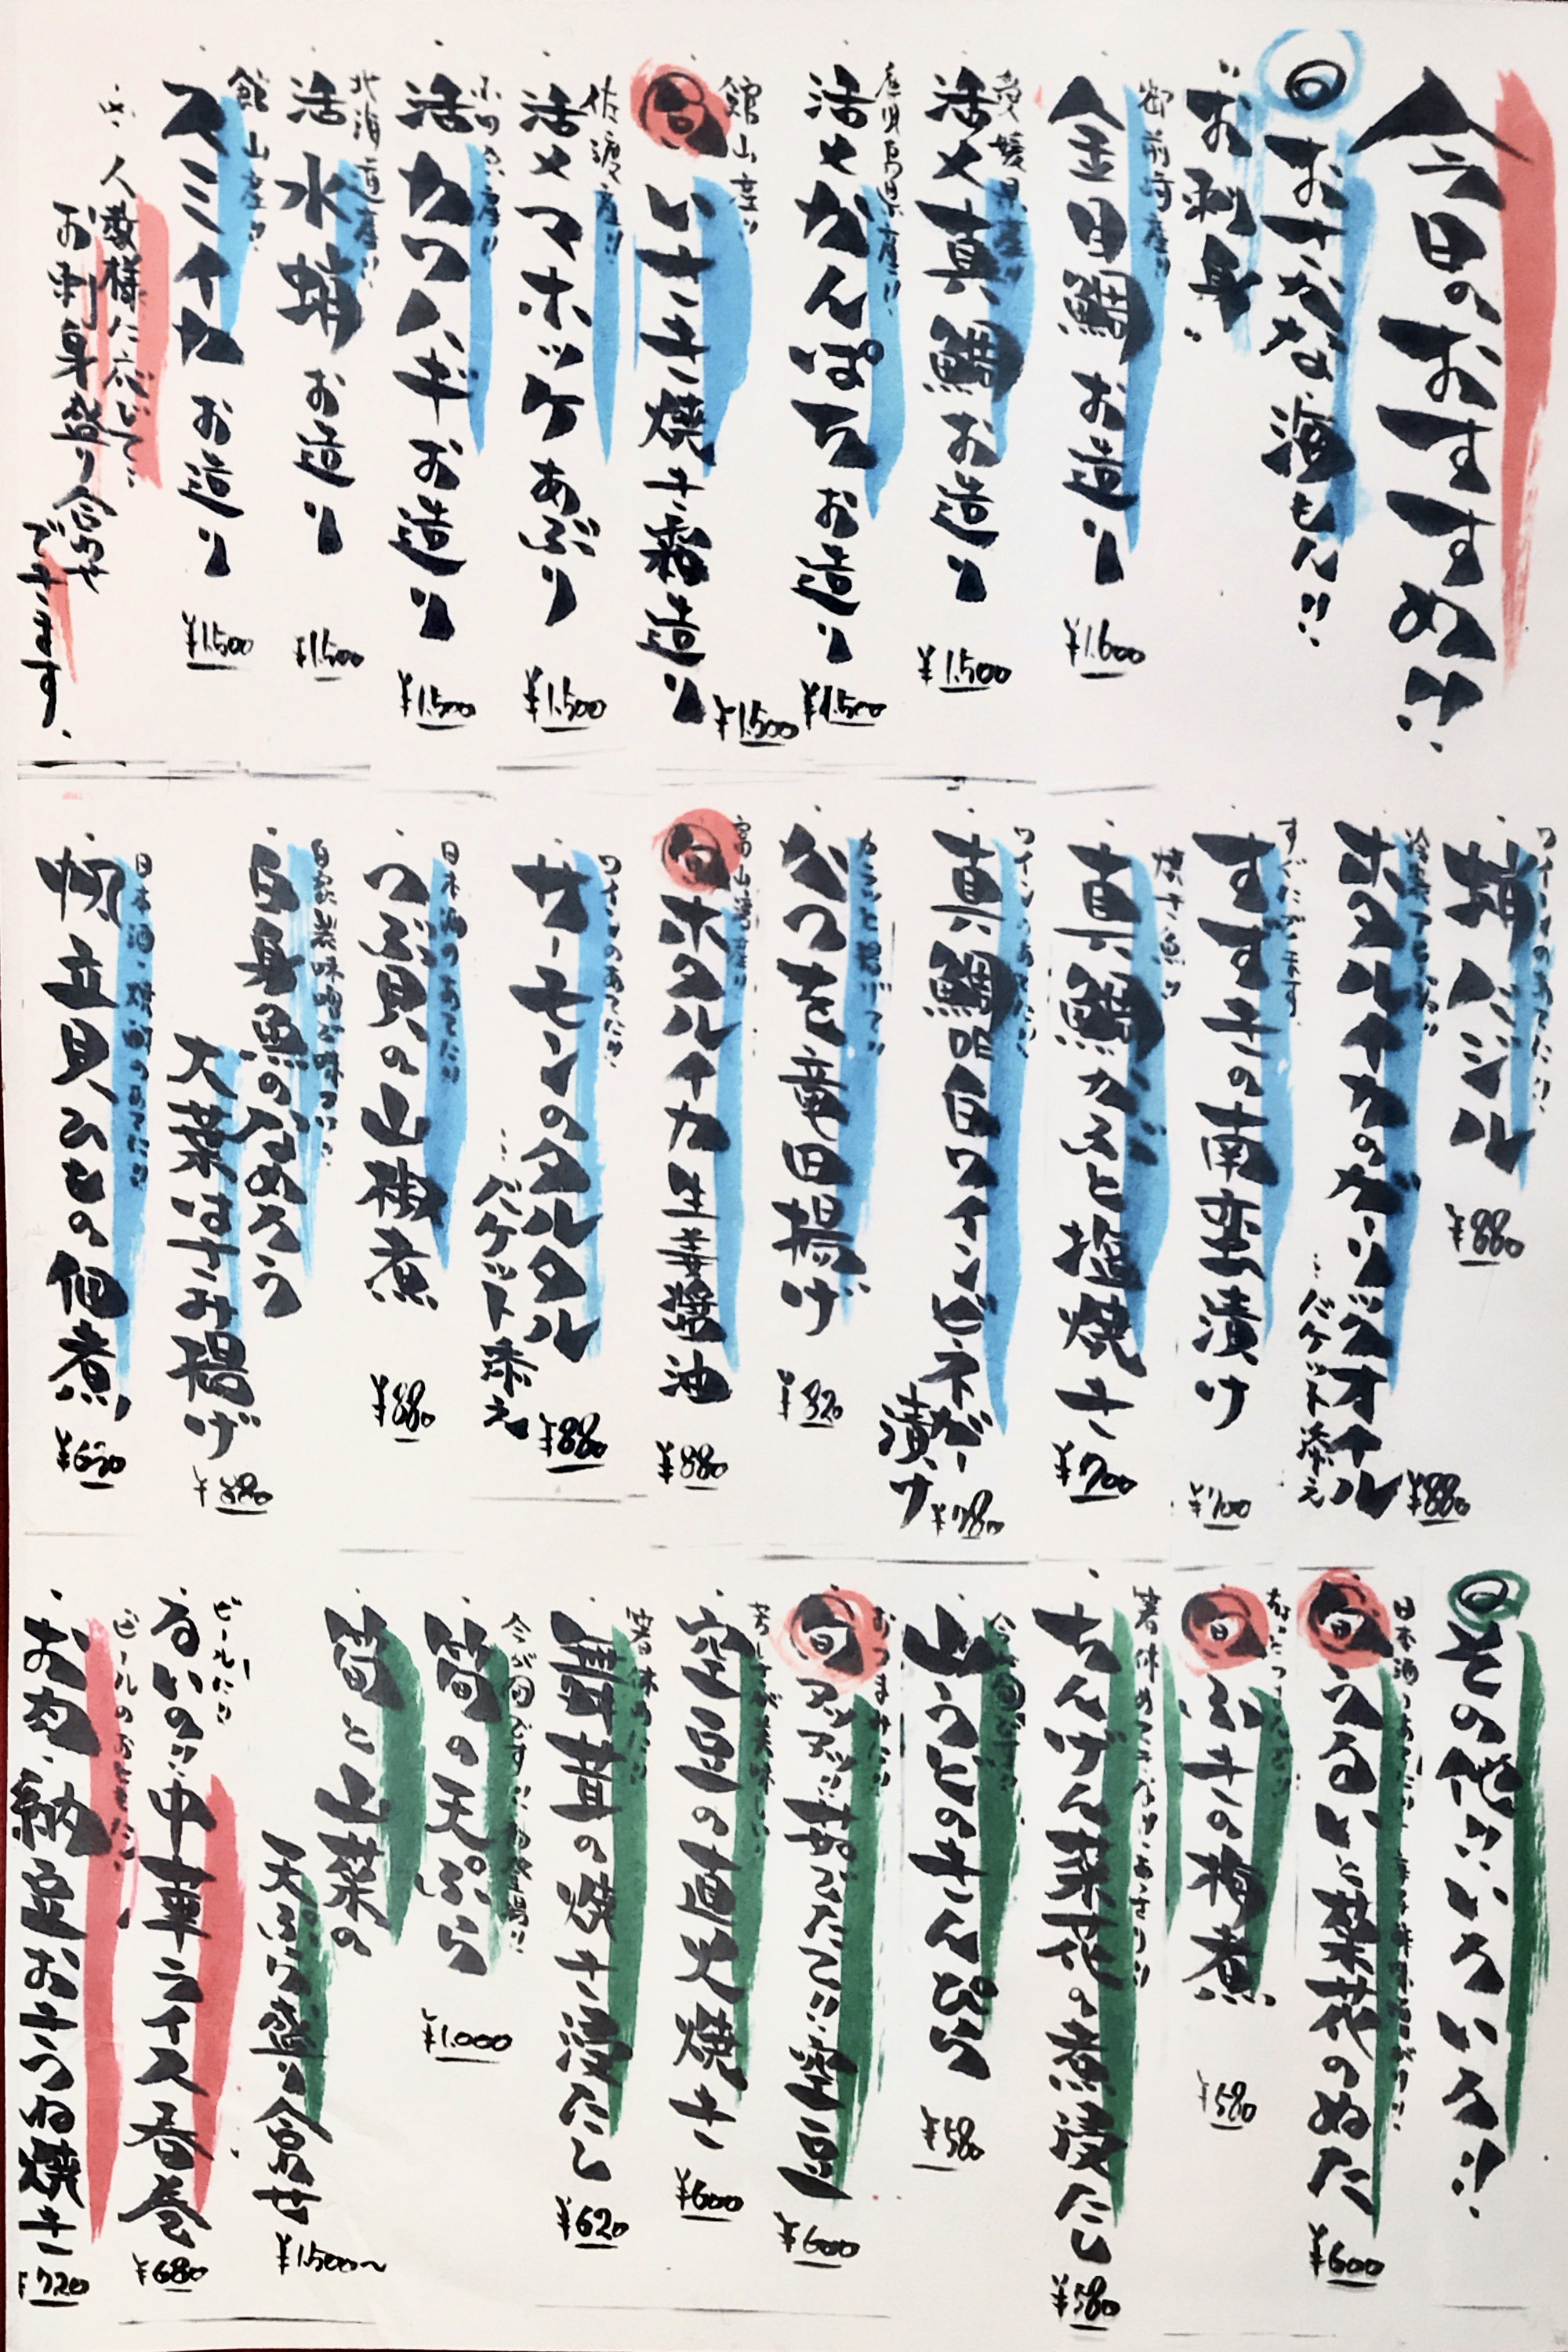 今日のおすすめ!!
◎おさかな・海もん!!
お刺身
金目鯛お造り
¥1.600
愛媛県産!!
活〆真鯛お造り
¥1.500
鹿児島県産!!
活〆かんぱちお造り
¥1.500
館山産!!
旬
いさき焼き霜造り
¥1.500
佐渡産!!
活〆マホッケあぶり
¥1.500
活カワハギお造り
¥1.500
北海道産!!
活水蛸お造り
¥1.500
館山産!!
スミイカお造り
¥1.500
人数様に応じて!!
お刺身盛り合わせ
できます。
ワインのあてに!!
蛸バジル
¥880
ホタルイカのガーリックオイル
…バケット添え
¥880
すずきの南蛮漬け
¥700
焼き魚!!
真鯛かぶと塩焼き
¥700
ワインのあてに!!
真鯛白ワインビネガー漬け
¥780
かつを竜田揚げ
¥820
富山県産!!
旬
ホタルイカ生姜醤油
¥880
ワインのあてに!!
サーモンのタルタル
…バケット添え
¥880
日本酒のあてに!!
つぶ貝の山椒煮
¥880
白身魚のなめろう
大葉はさみ揚げ
¥880
日本酒・焼酎のあてに!!
帆立貝ひもの佃煮
¥630
◎その他いろいろ!!
旬
うるいと菜花のぬた
¥600
旬
ふきの梅煮
¥580
箸休めに
かんげん菜花の煮浸し
¥580
今旬です!!
山うどのきんぴら
¥580
おつまみに!!
旬
アツアツ茹でたて!!空豆
¥600
空豆の直火焼き
¥600
箸休めに!!
舞茸の焼き浸し
¥620
筍の天ぷら
¥1.000
筍と山菜の
天ぷら盛り合わせ
¥1.500〜
ビールに!!
るいの!!中華ライス春巻
¥680
ビールのおともに!!
お肉・納豆おきつね焼き
¥720